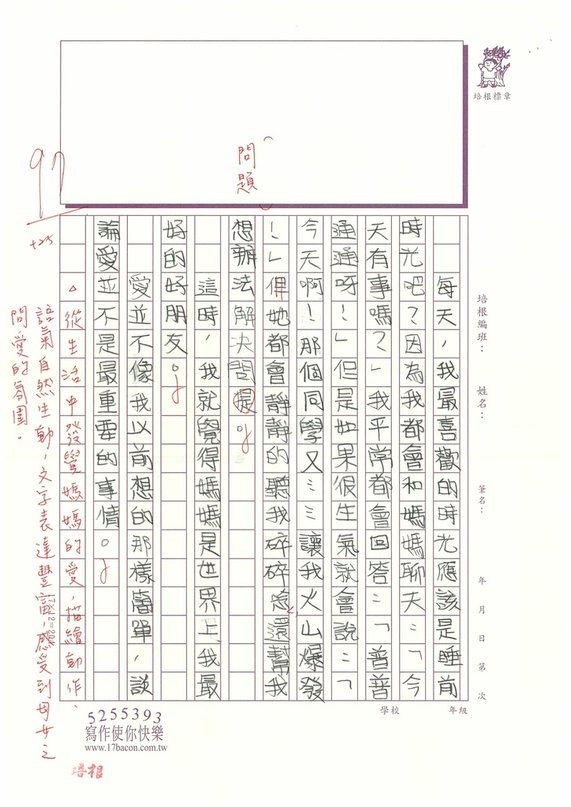 培根標章
培根編班：
姓名：
筆名：
年 月 日 第 次
學校
年級
每天，我最喜歡的時光應該是睡前
時光吧？因為我都會和媽媽聊天：「今
天有事嗎？」我平常都會回答：「普普
通通呀！」但是如果很生氣就會說：「
今天啊！那個同學又……讓我火山爆發
！」但她都會靜靜的聽我碎碎唸還幫我
想辦法解決問提。
這時，我就覺得媽媽是世界上我最
好的好朋友。
愛並不像我以前想的那樣簡單，談
論愛並不是最重要的事情。
問題
97
+25
△從生活中發覺媽媽的愛，描繪動作、
語氣自然生動，文字表達豐富，感受到母女之
間愛的氛圍。
5255393
寫作使你快樂
www.17bacon.com.tw
培根